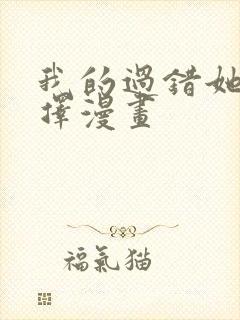 我的過錯她
擇漫畫
福氣猫